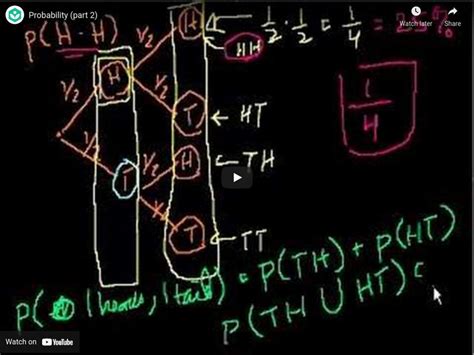 Probability (part 2)
Watch later
Share
P(H-H)
1/2 · 1/2 = 1/4 = 25%
HH
1/2
H
1/2
H
1/2
T
HT
1/4
1/2
T
1/2
H
TH
T
TT
P(1 heads, 1 tails) = P(TH) + P(HT)
P(TH U HT)
Watch on YouTube